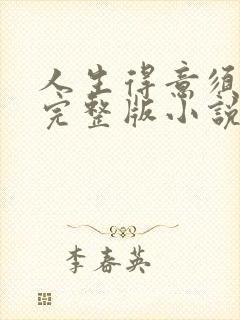 人生得意须
完整版小說
李春英